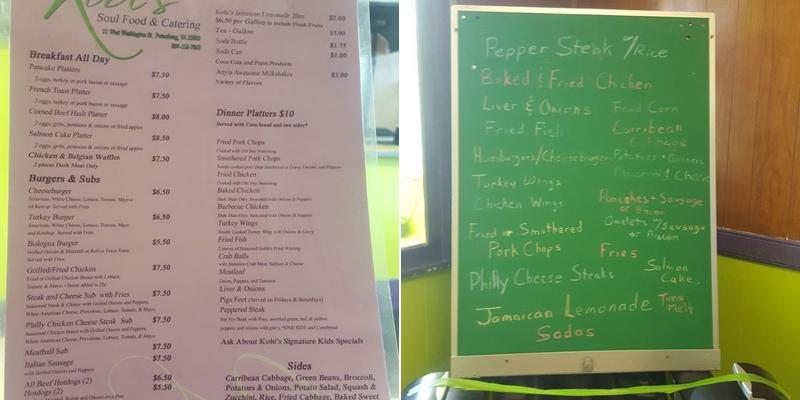 Kobi's
Soul Food & Catering
22 West Washington St. Petersburg, VA 23803
Breakfast All Day
Pancake Platters $7.50
2 eggs, turkey or pork bacon or sausage
French Toast Platter $7.50
2 eggs, turkey or pork bacon or sausage
Corned Beef Hash Platter $8.00
2 eggs, grits, potatoes & onions or fried apples
Salmon Cake Platter $8.50
2 eggs, grits, potatoes & onions or fried apples
Chicken & Belgian Waffles $7.50
2 pieces Dark Meat Only
Burgers & Subs
Cheeseburger $6.50
American /White Cheese, Lettuce, Tomato, Mayo a
nd Ketchup. Served with Fries
Turkey Burger $6.50
American /White Cheese, Lettuce, Tomato, Mayo
and Ketchup. Served with Fries
Bologna Burger $5.50
Grilled Onions & Mustard on Roll or Texas Toast.
Served with Fries
Grilled/Fried Chicken $7.50
Fried or Grilled Chicken Breast with Lettuce,
Tomato & Mayo. Cheese added is 25¢
Steak and Cheese Sub with Fries $7.50
Seasoned Steak & Cheese with Grilled Onions and Peppers,
White American Cheese, Provolone, Lettuce, Tomato, & Mayo.
Philly Chicken Cheese Steak Sub $7.50
Seasoned Chicken breast with Grilled Onions and Peppers,
White American Cheese, Provolone, Lettuce, Tomato, & Mayo.
Meatball Sub $7.50
Italian Sausage $7.50
with Grilled Onions and Peppers
All Beef Hotdogs (2) $6.50
Hotdogs (2) $5.50
Kobi's Jamaican Lemonade 20oz $2.00
$6.50 per Gallon to include Fresh Fruits
Tea - Gallon $5.00
Soda Bottle $1.75
Soda Can $1.00
Coca Cola and Pepsi Products
Anyia Awesome Milkshakes $3.00
Variety of Flavors
Dinner Platters $10
Served with Corn bread and two sides*
Fried Pork Chops
Cooked with Old Bay Seasoning
Smothered Pork Chops
Tender cooked pork chop smothered in Gravy, Onions, and Peppers
Fried Chicken
Cooked with Old Bay Seasoning
Baked Chicken
Dark Meat Only. Seasoned with Onions & Peppers
Barbecue Chicken
Dark Meat Only. Seasoned with Onions & Peppers
Turkey Wings
Tender Cooked Turkey Wing with Onions & Gravy
Fried Fish
2 pieces of Seasoned Golden Fried Whiting
Crab Balls
with Imitation Crab Meat, Salmon & Cheese
Meatleaf
Onion, Peppers, and Tomatoes
Liver & Onions
Pigs Feet (Served on Fridays & Saturdays)
Peppered Steak
Stir Fry Steak with Rice, assorted green, red, & yellow
peppers and onions with gravy *ONE SIDE and Cornbread
Ask About Kobi's Signature Kids Specials
Sides
Carribean Cabbage, Green Beans, Broccoli,
Potatoes & Onions, Potato Salad, Squash &
Zucchini, Rice, Fried Cabbage, Baked Sweet
Pepper Steak w/Rice
Baked & Fried Chicken
Liver & Onions
Fried Fish
Humburgers/Cheeseburger
Turkey Wings
Chicken Wings
Fried or Smothered
Pork Chops
Philly Cheese Steaks
Jamaican Lemonade
Sodas
Fried Corn
Carribean
Cabbage
Potatoes + Onions
Macaroni & Cheese
Pancakes + Sausage
or Bacon
Omelets w/Sausage
or Bacon
Fries
Salmon
Cake
Tuna
Melt